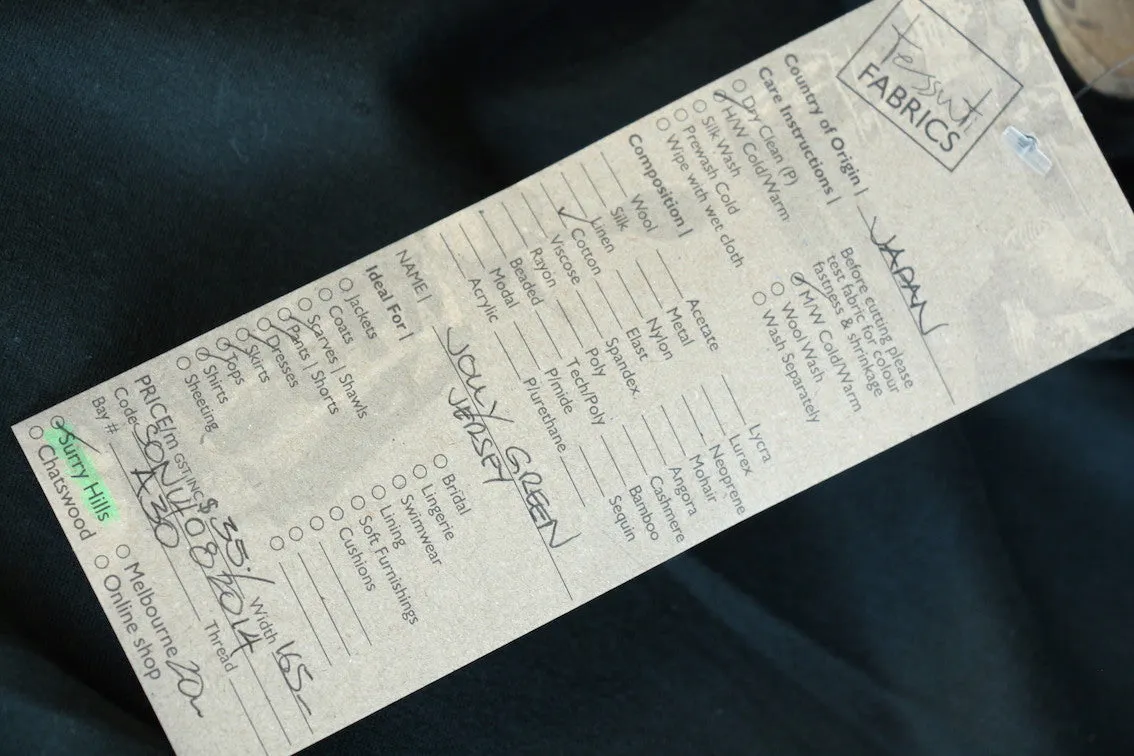 Tessuti
FABRICS
Country of Origin | JAPAN
Care Instructions |
Before cutting please
test fabric for colour
fastness & shrinkage
Dry Clean (P)
H/W Cold/Warm
Silk Wash
Prewash Cold
Wipe with wet cloth
M/W Cold/Warm
Wool Wash
Wash Separately
Composition |
Wool
Silk
Linen
Cotton
Viscose
Rayon
Beaded
Modal
Acrylic
Acetate
Metal
Nylon
Elast
Spandex
Poly
Tech/Poly
P/mide
Plurethane
Lycra
Lurex
Neoprene
Mohair
Angora
Cashmere
Bamboo
Sequin
NAME | JOLLY GREEN
JERSEY
Ideal For |
Jackets
Coats
Scarves | Shawls
Pants | Shorts
Dresses
Skirts
Tops
Shirts
Sheeting
Bridal
Lingerie
Swimwear
Lining
Soft Furnishings
Cushions
PRICE/m GST INC $35./ Width 165-
Code Thread
Bay # A30
Surry Hills
Chatswood
Melbourne
Online shop